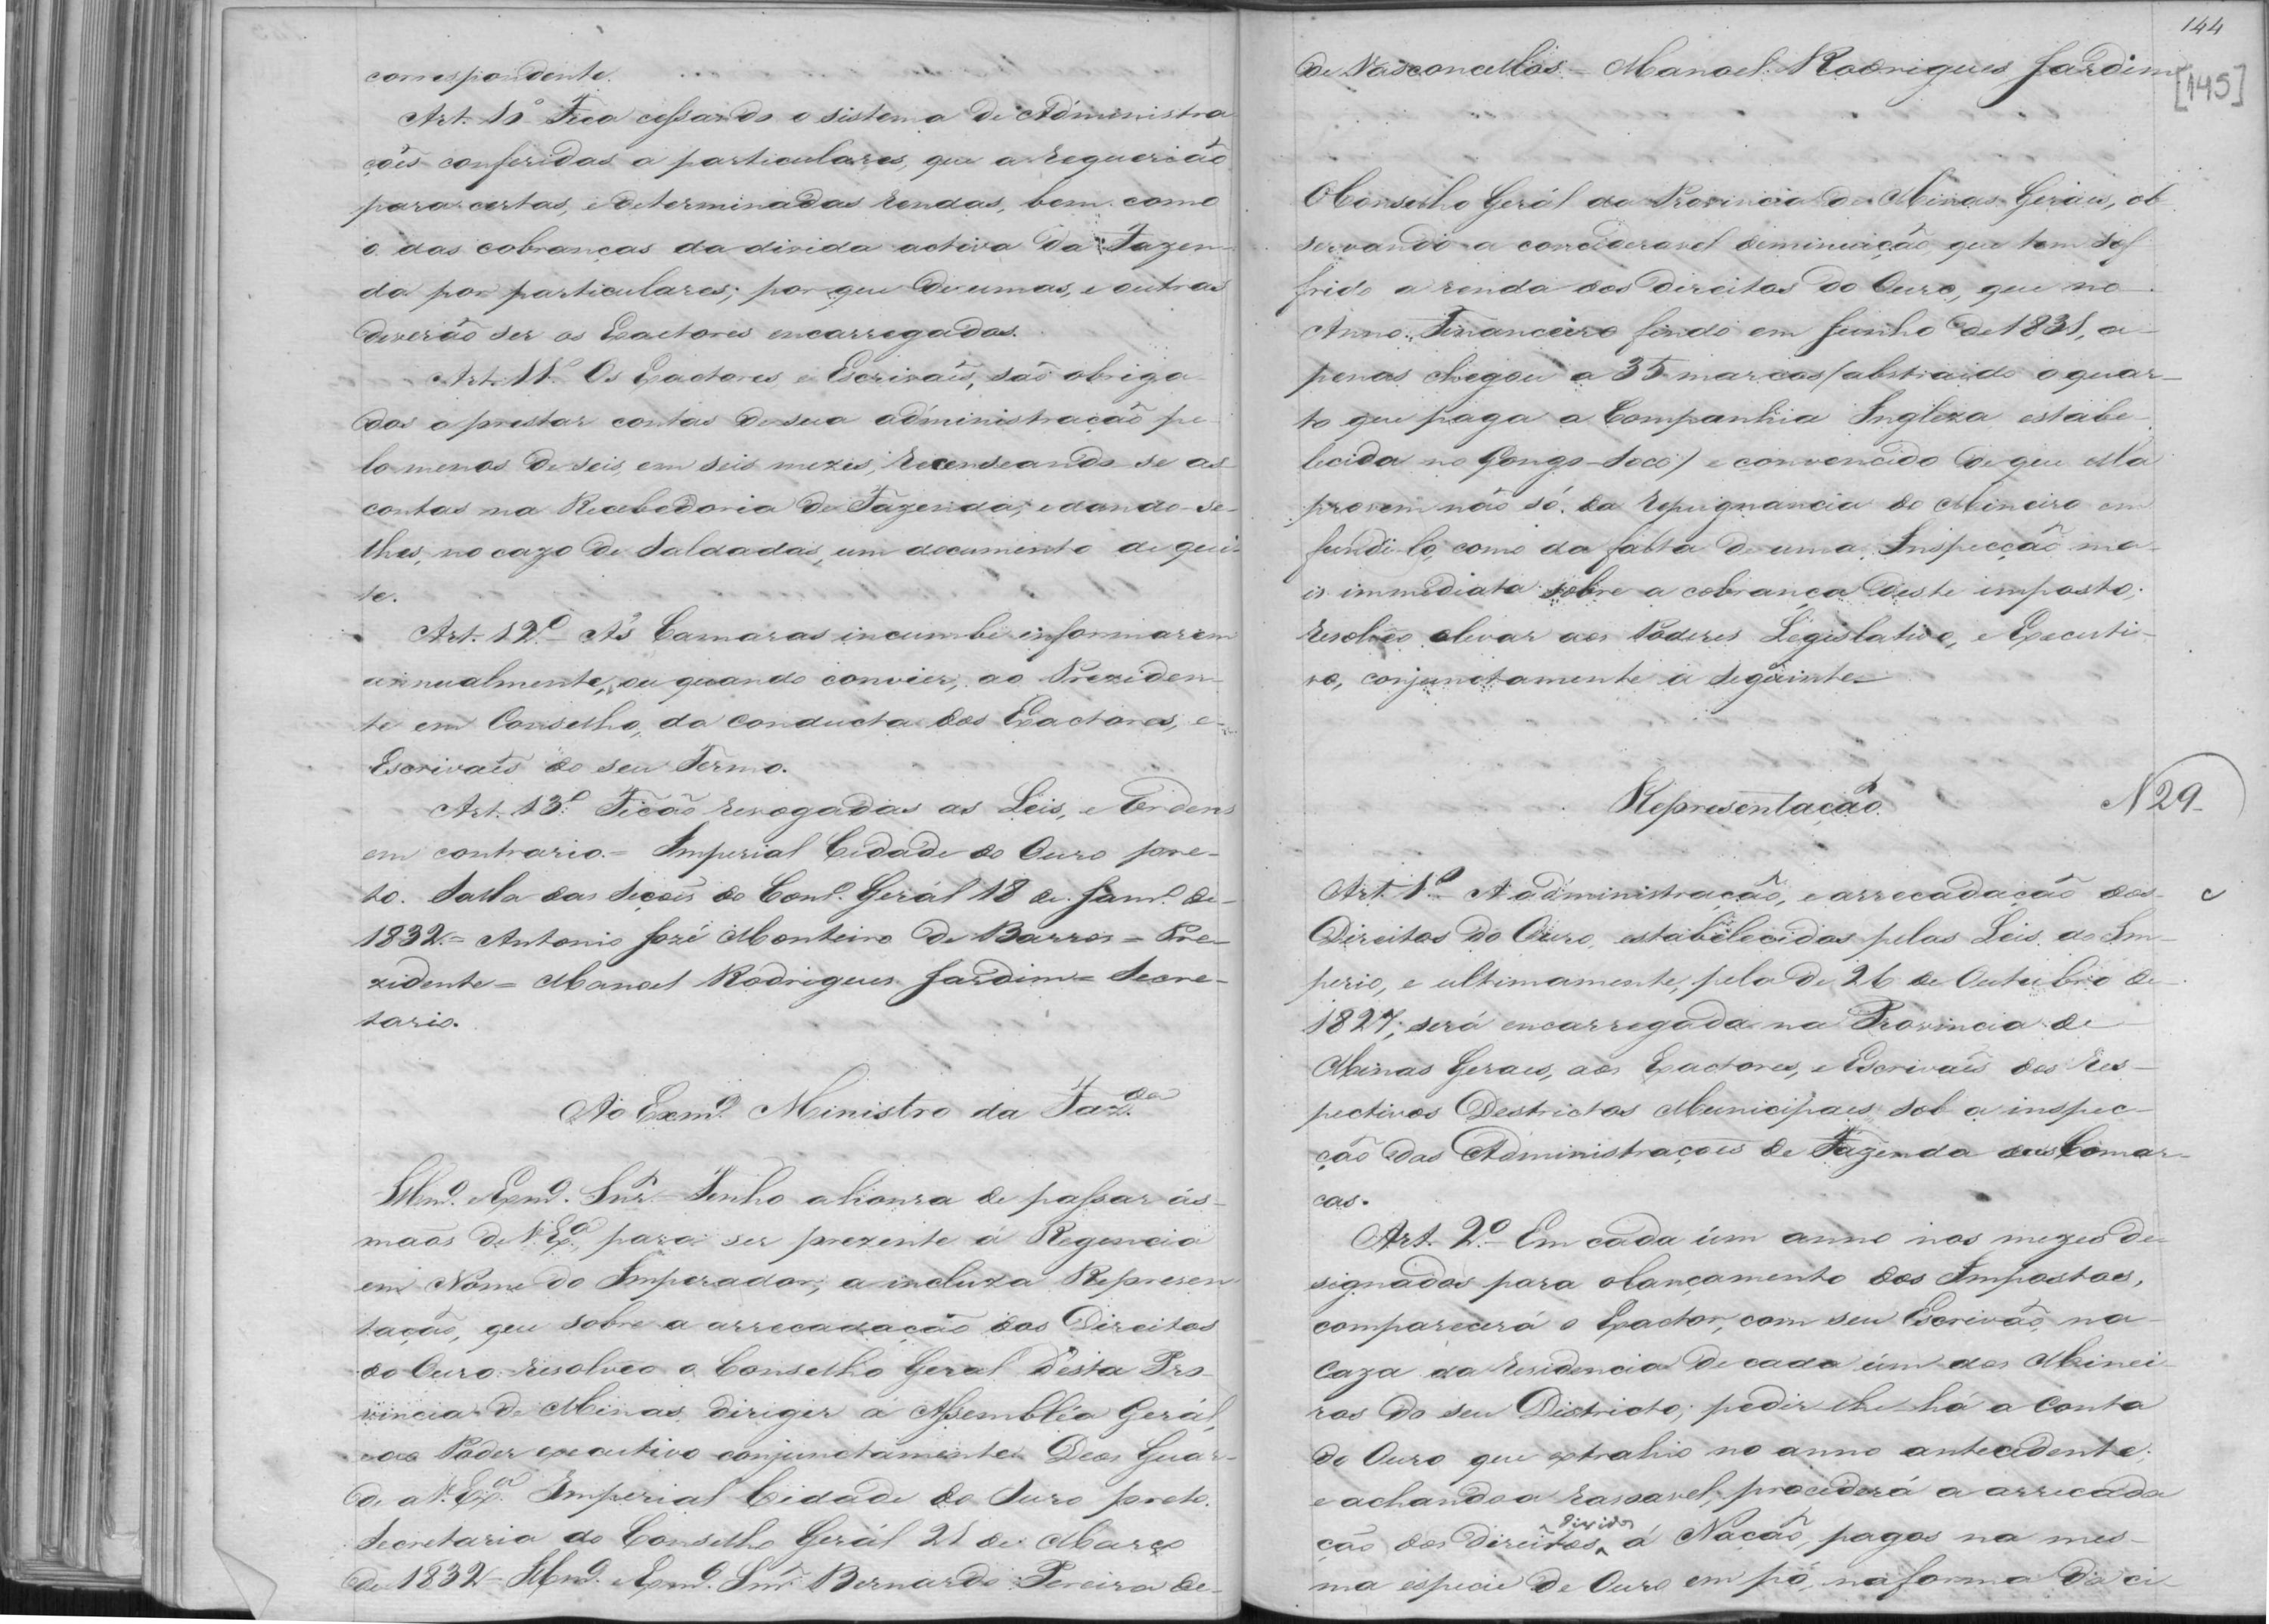 correspondente.
Art. 10 Fica cessando o sistema de Administra
ções conferidas a particulares, que a requerião
para certas, e determinadas rendas, bem como
o das cobranças da divida activa da Fazen-
da por particulares; por que de umas, e outras
deverão ser os Exactores encarregados.
Art. 11.º Os Exactores, e Escrivaẽs, saõ obriga-
dos a prestar contas de sua administração pe-
lo menos de seis, em seis mezes, recenseando se as
contas na Recebedoria de Fazenda, e dando-se-
lhes, no cazo de saldadas, um documento de qui-
te.
Art. 12.º - A's Camaras incumbe informarem
annualmente, ou quando convier, ao Preziden-
te em Conselho, da conducta dos Exactores, e
Escrivaẽs do seu Termo.
Art. 13.º Ficão revogadas as Leis, e Ordens
em contrario. = Imperial Cidade do Ouro pre-
to. Salla das Seçoẽs do Conl.º Gerál 18 de Janr.º de
1832. = Antonio Jozé Monteiro de Barros = Pre-
zidente = Manoel Rodrigues Jardim = Secre-
tario.
Ao Exmº. Ministro da Faz.da
Illmº. Exmº. Snr. - Tenho a honra de passar ás
maõs de V. Exª., para ser prezente á Regencia
em Nome do Imperador, a incluza Represen
tação, que sobre a arrecadação dos Direitos
do Ouro resolveo o Conselho Geral d'esta Pro-
vincia de Minas dirigir á Assembléa Gerál,
e ao Poder executivo conjunctamente. Deos Guar-
de a V. Exª. Imperial Cidade do Ouro preto.
Secretaria do Conselho Gerál 21 de Março
de 1832 - Illmº. Exmº. Snr. Bernardo Pereira de
144
[145]
de Vasconcellos. = Manoel Rodrigues Jardim
O Conselho Gerál da Provincia de Minas Geraes, ob
servando a consideravel deminuição, que tem sof
frido a renda dos direitos do Ouro, que no
Anno Financeiro findo em Junho de 1831, a-
penas chegou a 35 marcos (abstraido o quar-
to que paga a Companhia Ingleza estabe-
lecida no Gongo-Soco) e convencido de que ella
provem não só da repugnancia do Mineiro em
fundi-lo, como da falta de uma Inspecção ma-
is immediata sobre a cobrança deste imposto;
resolveo elevar aos Poderes Legislativo, e Executi-
vo, conjunctamente a seguinte
Representação.
N 29
Art. 1.º - A administração, e arrecadação dos
Direitos do Ouro, estabelecidos pelas Leis do Im-
perio, e ultimamente, pela de 26 de Outubro de
1827, será encarregada na Provincia de
Minas Geraes, aos Exactores, e Escrivaẽs dos res-
pectivos Destrictos Municipaes sob a inspec-
ção das Administraçoẽs de Fazenda das Comar-
cas.
Art. 2.º - Em cada úm anno nos mezes de
signados para o lançamento dos Impostos,
comparecerá o Exactor, com seu Escrivão, na
Caza da residencia de cada úm dos Minei-
ros do seu Districto; pedir lhe há a conta
do Ouro que extrahio no anno antecedente;
e achando a rasoavel, procederá a arrecada
ção dos direitos devidos á Nação, pagos na mes-
ma especie de Ouro em pó, na forma da ci-